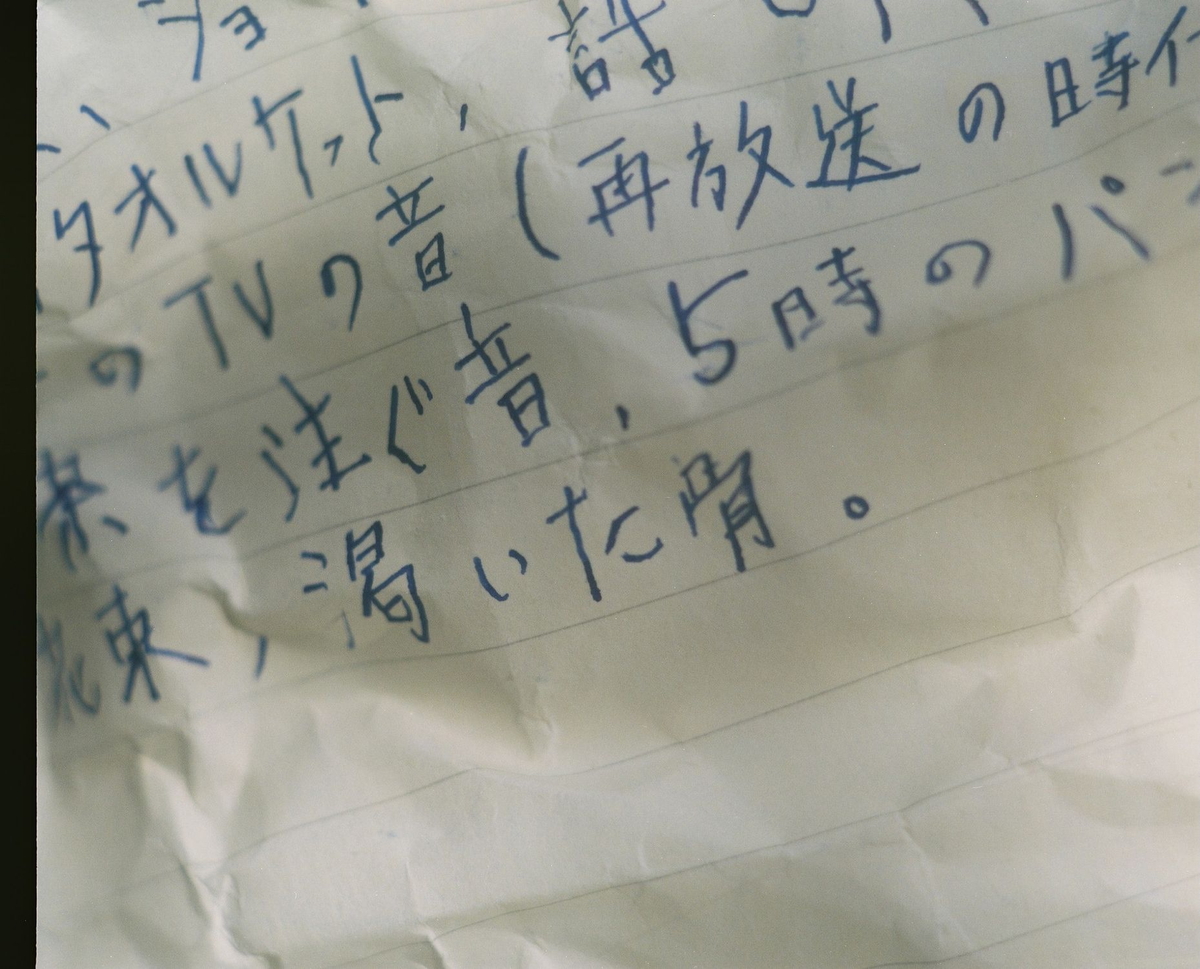 ショ
タオルケット、話
のTVの音(再放送の時
茶を注ぐ音、5時のパ
束、渇いた骨。